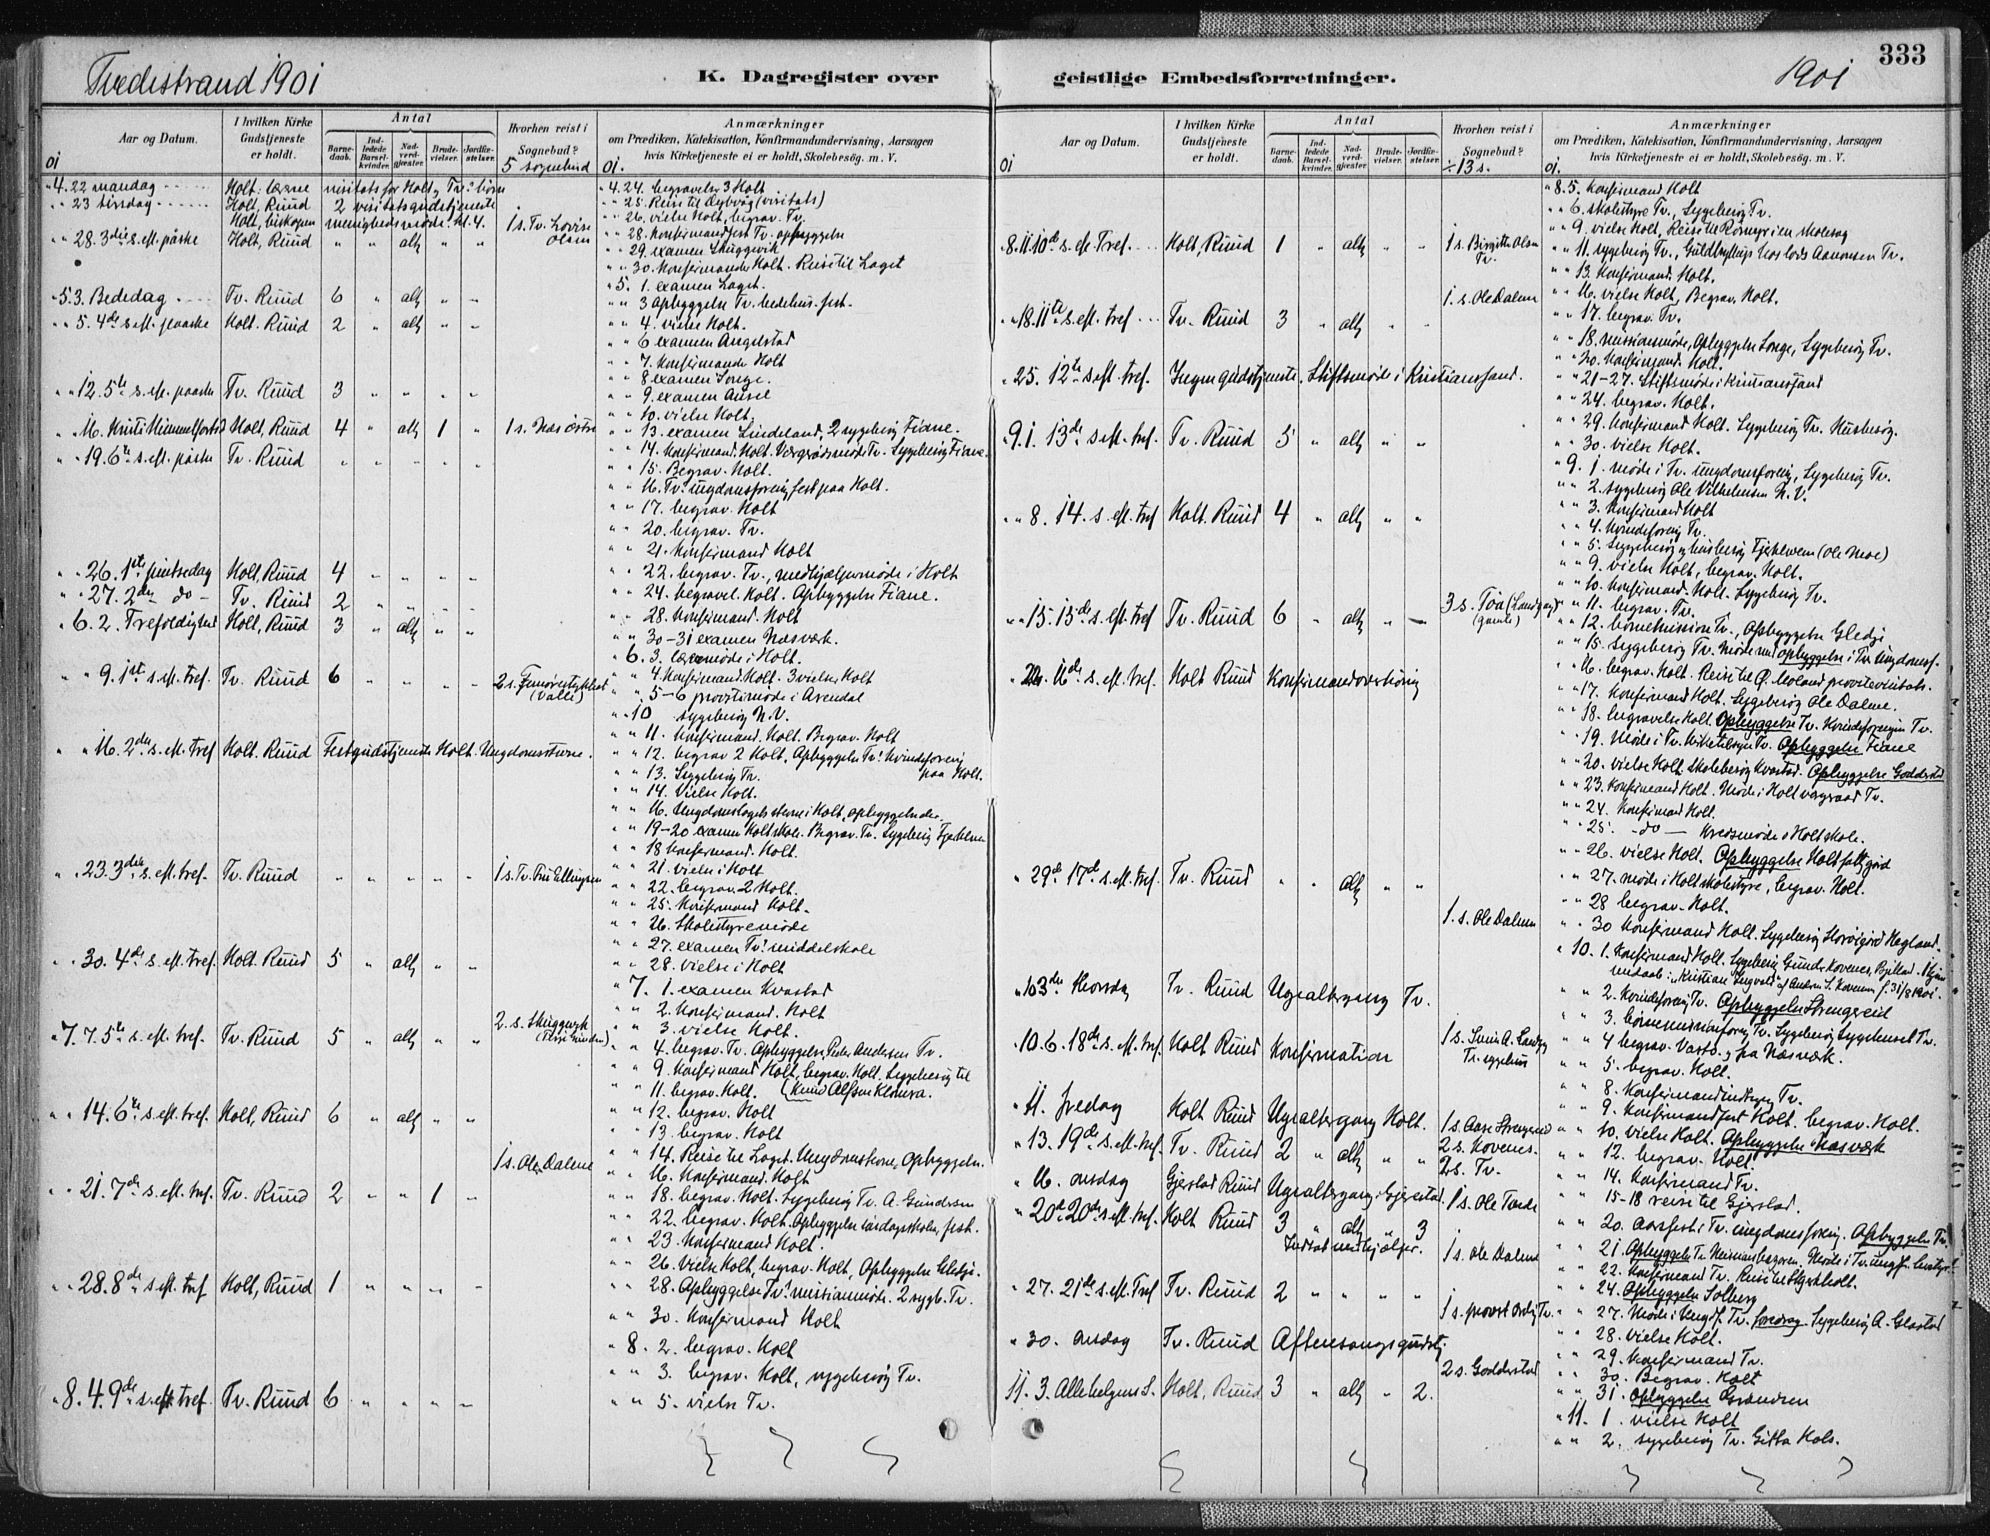 Tvedestrand 1901
K. Dagregister over
geistlige Embedsforretninger.
1901
333
Aar og Datum.
I hvilken Kirke Gudstjeneste er holdt.
Antal
Barnedaab.
Indledede Barselkvinder.
Nadverdgjester
Brudevielser.
Jordfæstelser.
Hvorhen reist i Sognebud?
5 sognebud
Anmærkninger
om Prædiken, Katekisation, Konfirmandundervisning, Aarsagen
hvis Kirketjeneste ei er holdt, Skolebesög. m. V.
01
01.
" 4. 22 mandag Holt. visitats for Holt, Tv.
" " 23 tirsdag Holt, Ruud 2 visitatsgudstjeneste
Holt, biskopen menighedsmøde. kl. 4. 1 s. Tv. Lovise Olsen
" " 28. 3die s. eft. påske Holt, Ruud " " altg " "
" 5. 3. Bededag Tv. Ruud 6 " altg " "
" " 5. 4de s. eft. paaske Holt. Ruud 2 " altg " "
" " 12. 5te s. eft. paaske Tv. Ruud 3 " " " "
" " 16. Kristi Himmelfartsd Holt, Ruud 4 " altg 1 " 1 s. Næs
" " 19. 6te s. eft. påske Tv. Ruud " " " " "
" " 26. 1ste pintsedag Holt, Ruud 4 " " " "
" " 27. 2den do - Tv. Ruud 2 " " " "
" 6. 2. Trefoldighed Holt, Ruud 3 " altg " "
" " 9. 1ste s. eft. tref. Tv. Ruud 6 " " " " 2 s. (Valle)
" " 16. 2den s. eft. tref Holt. Ruud Festgudstjeneste Holt. Ungdomsstevne.
" " 23. 3die s. eft. tref. Tv. Ruud " " " " " 1 s. Tv. Ellingsen
" " 30. 4de s. eft. tref. Holt. Ruud 5 " altg " "
" 7. 7. 5te s. eft. tref. Tv. Ruud 5 " altg " " 2. s. Skuggevik
" " 14. 6te s. eft. tref. Holt, Ruud 6 " altg " "
1 s. Ole Dalene
" " 21. 7de s. eft. tref. Tv. Ruud 2 " " 1 "
" " 28. 8de s. eft. tref Holt, Ruud 1 " " " "
" 8. 4. 9de s. eft. tref. Tv. Ruud 6 " " " "
" 4. 24. begravelse 3 Holt
" " 25. Reise til Dybvåg (visitats)
" " 26. vielse Holt, begrav. Tv.
" " 28. Konfirmandfest Tv. opbyggelse
" " 29. examen Skuggevik
" " 30. Konfirmander Holt. Reise til Laget
" 5. 1. examen Laget.
" " 3 Opbyggelse Tv. bedehus. fest.
" " 4. vielse Holt.
" " 6 examen Angelstad
" " 7. Konfirmander Holt
" " 8 examen Songe.
" " 9. examen
" " 10. vielse Holt.
" " 13. examen Lindeland, 2 sygebesøg Fiane.
" " 14. Konfirmand. Holt. Tv. Sygebesøg Fiane.
" " 15. Begrav. Holt.
" " 16. Tv. ungdomsforenig fest paa Holt.
" " 17. begrav. Holt
" " 20. begrav. Tv.
" " 21. Konfirmand Holt
" " 22. begrav. Tv., medhjælpermøde i Holt
" " 24. begravel. Holt. Opbyggelse Fiane.
" " 28. Konfirmand. Holt
" " 30-31 examen Næsværk.
" 6. 3. møde i Holt.
" " 4. Konfirmand. Holt. 3 vielser Holt
" " 5-6 provstimøde i Arendal
" " 10 sygebesøg N.V.
" " 11. Konfirmand. Holt. Begrav. Holt
" " 12. begrav 2 Holt, Opbyggelse Tv. Kvindeforenig paa Holt.
" " 13. Sygebesøg Tv.
" " 14. Vielse Holt.
" " 16. Ungdomslagets stevne i Holt, opbyggelse
" " 19-20 examen Holt skole. Begrav. Tv. Sygebesøg
" " 18 Konfirmand. Holt.
" " 21. vielse i Holt
" " 22. begrav. 2 Holt.
" " 25. Konfirmand Holt.
" " 26. Skolestyremøde
" " 27. examen Tv. middelskole
" " 28. vielse i Holt
" 7. 1. examen Kvastad
" " 2. Konfirmand. Holt
" " 3. vielse Holt.
" " 4. begrav. Tv. Opbyggelse Peder Andersen Tv.
" " 9. Konfirmand Holt, begrav. Holt. Sygebesøg til
" " 11. begrav. Holt. (Knud Alfsen
" " 12. begrav. Holt
" " 13. begrav. Holt
" " 14. Reise til Laget. Ungdomsstevne, Opbyggelse.
" " 16. Konfirmand. Holt
" " 18. begrav. Holt. Sygebesøg Tv. A. Gundersen
" " 22. begrav. Holt. Opbyggelse søndagsskolen, fest.
" " 23. Konfirmand Holt.
" " 26. vielse Holt, begrav. Holt, Opbyggelse Gledje.
" " 28. Opbyggelse Tv. missionmøde. 2 sygb. Tv.
" " 30. Konfirmand Holt
" 8. 2. begrav. Holt
" " 3. begrav. Holt, sygebesøg Tv.
" " 5. vielse Tv.
Aar og Datum.
I hvilken Kirke Gudstjeneste er holdt.
Antal
Barnedaab.
Indledede Barselkvinder.
Nadverdgjester
Brudevielser.
Jordfæstelser.
Hvorhen reist i Sognebud?
÷ 13 s.
Anmærkninger
om Prædiken, Katekisation, Konfirmandundervisning, Aarsagen
hvis Kirketjeneste ei er holdt, Skolebesög. m. V.
01
01.
8. 11. 10de s. eft. Tref. Holt, Ruud 1 " altg " " 1 s. Birgitte Olsen Tv.
1. s. Ole Dalene
" " 18. 11te s. eft. tref Tv. Ruud 3 " altg " "
" 25. 12te s. eft. tref. Ingen gudstjeneste. Stiftsmøde i Kristianssand.
" 9. 1. 13de s. eft. tref. Tv. Ruud 5 " altg " "
" " 8. 14. s. eft. tref Holt. Ruud 4 " altg " "
" " 15. 15de s. eft. tref Tv. Ruud 6 " altg " " 3 s.
" 22. 16de s. eft. tref. Holt Ruud Konfirmandoverhøring
" 29de 17de s. eft. tref. Tv. Ruud " " altg " "
1. s. Ole Dalene
" 10 3die Thorsdag Tv. Ruud Ugealtergang Tv.
" 10. 6. 18de s. eft. tref Holt Ruud Konfirmation 1 s. Tv. sygehus
" 11. fredag Holt Ruud Ugealtergang Holt. 1 s. Aase Strengereid
" 13. 19de s. eft. tref. Tv. Ruud 2 " altg " " 2 s. Kovenes.
2 s. Tv.
" 16. onsdag Gjerstad Ruud Ugealtergang i Gjerestad. 1 s. Ole
" 20de 20de s. eft. tref. Holt Ruud 3 " altg " 3
Indsat medhjælper. 1 s. Ole Dalene
" 27. 21de s. eft. Tref Tv. Ruud 2 " " " "
1 s. provst Tv.
" 30. onsdag Tv. Ruud Aftensangsgudstj.
2 s. Goderstad
11. 3. Allehelgens s. Holt, Ruud 3 " altg " 2.
" 8. 5. Konfirmand Holt
" " 6. skolestyre Tv., Sygebesøg Tv.
" " 9. vielse Holt, Reise til
" " 11. sygebesøg Tv., Guldbryllup hos Aanonsen Tv.
" " 13. Konfirmand. Holt.
" " 16. vielse Holt, Begrav. Holt.
" " 17. begrav. Tv.
" " 18. missionsmøde, Opbyggelse Songe, Sygebesøg Tv.
" " 20. Konfirmand. Holt.
" " 21-27. Stiftsmøde i Kristianssand
" " 24. begrav. Holt.
" " 29. Konfirmand Holt. Sygebesøg Tv. Husbesøg.
" " 30. vielse Holt.
" 9. 1. møde i Tv. ungdomsforenig, Sygebesøg Tv.
" " 2. sygebesøg Ole Vilhelmsen N.V.
" " 3. Konfirmand Holt
" " 4. Kvindeforenig Tv.
" " 5. Sygebesøg, husbesøg (Ole Moe)
" " 9. vielse Holt, begrav. Holt.
" " 10. Konfirmand. Holt. Sygebesøg Tv.
" " 11. begrav. Tv.
" " 12. børnemission Tv., Opbyggelse Gledje
" " 15. sygebesøg Tv. Møde med opbyggelse i Tv. Ungdomsf.
" " 16. begrav. Holt. Reise til Ø. Moland provstevisitats.
" " 17. Konfirmand Holt. Sygebesøg Ole Dalene.
" " 18. begravelse Holt. Opbyggelse Tv. Kvindeforenigen Tv.
" " 19. Møde i Tv. Tv. Opbyggelse Fiane
" " 20. vielse Holt. Skolebesøg Kvastad. Opbyggelse Goderstad
" " 23. Konfirmand Holt. Møde i Holt Tv.
" " 24. Konfirmand Holt.
" " 25. - do - Kredsmøde Holt skole.
" " 26. vielse Holt. Opbyggelse Holt fattiggård
" " 27. møde i Holt skolestyre, begrav. Holt.
" " 28 begrav. Holt.
" " 30 Konfirmand Holt. Sygebesøg
" 10. 1. Konfirmand Holt. Sygebesøg Kovenes.
" " 2. Kvindeforenig Tv. Opbyggelse Strengereid
" " 3. børnemissionforenig Tv. Sygebesøg Sygehuset Tv.
" " 4 begrav. og fra Næsværk.
" " 5. begrav. Holt.
" " 8. Konfirmand Tv.
" " 9. Konfirmandfest Holt. begrav. Holt.
" " 10. vielse Holt. Opbyggelse Næsværk
" " 12. begrav. Holt.
" " 14. Konfirmand Tv.
" " 15-18 reise til Gjerstad.
" " 20. aarsfest i Tv. ungdomsforenig. Opbyggelse Tv.
" " 21. Opbyggels Tv. Møde i Tv. ungf.
" " 22. Konfirmand Tv. Reise til
" " 24. Opbyggelse Solberg
" " 27. Møde i Ungdf. Tv. foredrag. Sygebesøg A.
" " 28. vielse Holt.
" " 29. Konfirmand Tv.
" " 30. Begrav. Holt
" " 31. Opbyggelse
" 11. 1. vielse Holt
" " 2. sygebesøg Tv. Gitta